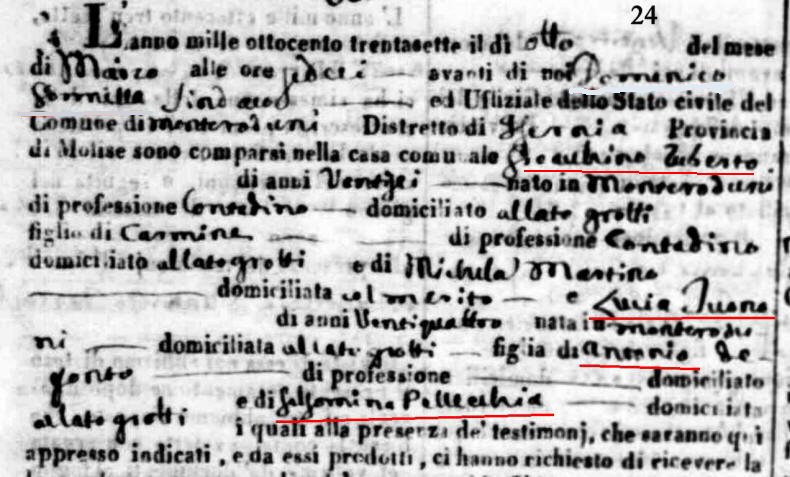 24
L'anno mille ottocento trentasette il dì otto del mese
di Marzo alle ore dieci avanti di noi Domenico
Sindaco ed Uffiziale dello Stato civile del
Comune di Monteroduni Distretto di Isernia Provincia
di Molise sono comparsi nella casa comunale Gioachino Uberto
di anni Ventisei nato in Monteroduni
di professione Contadino domiciliato allato grotti
figlio di Carmine di professione Contadino
domiciliato allato grotti e di Michela Martino
domiciliata col marito e Lucia
di anni Ventiquattro nata in Monterodu
ni domiciliata allato grotti figlia di Antonio de
di professione domiciliato
e di Pellecchia domiciliata
allato grotti i quali alla presenza de' testimonj, che saranno qui
appresso indicati, e da essi prodotti, ci hanno richiesto di ricevere la